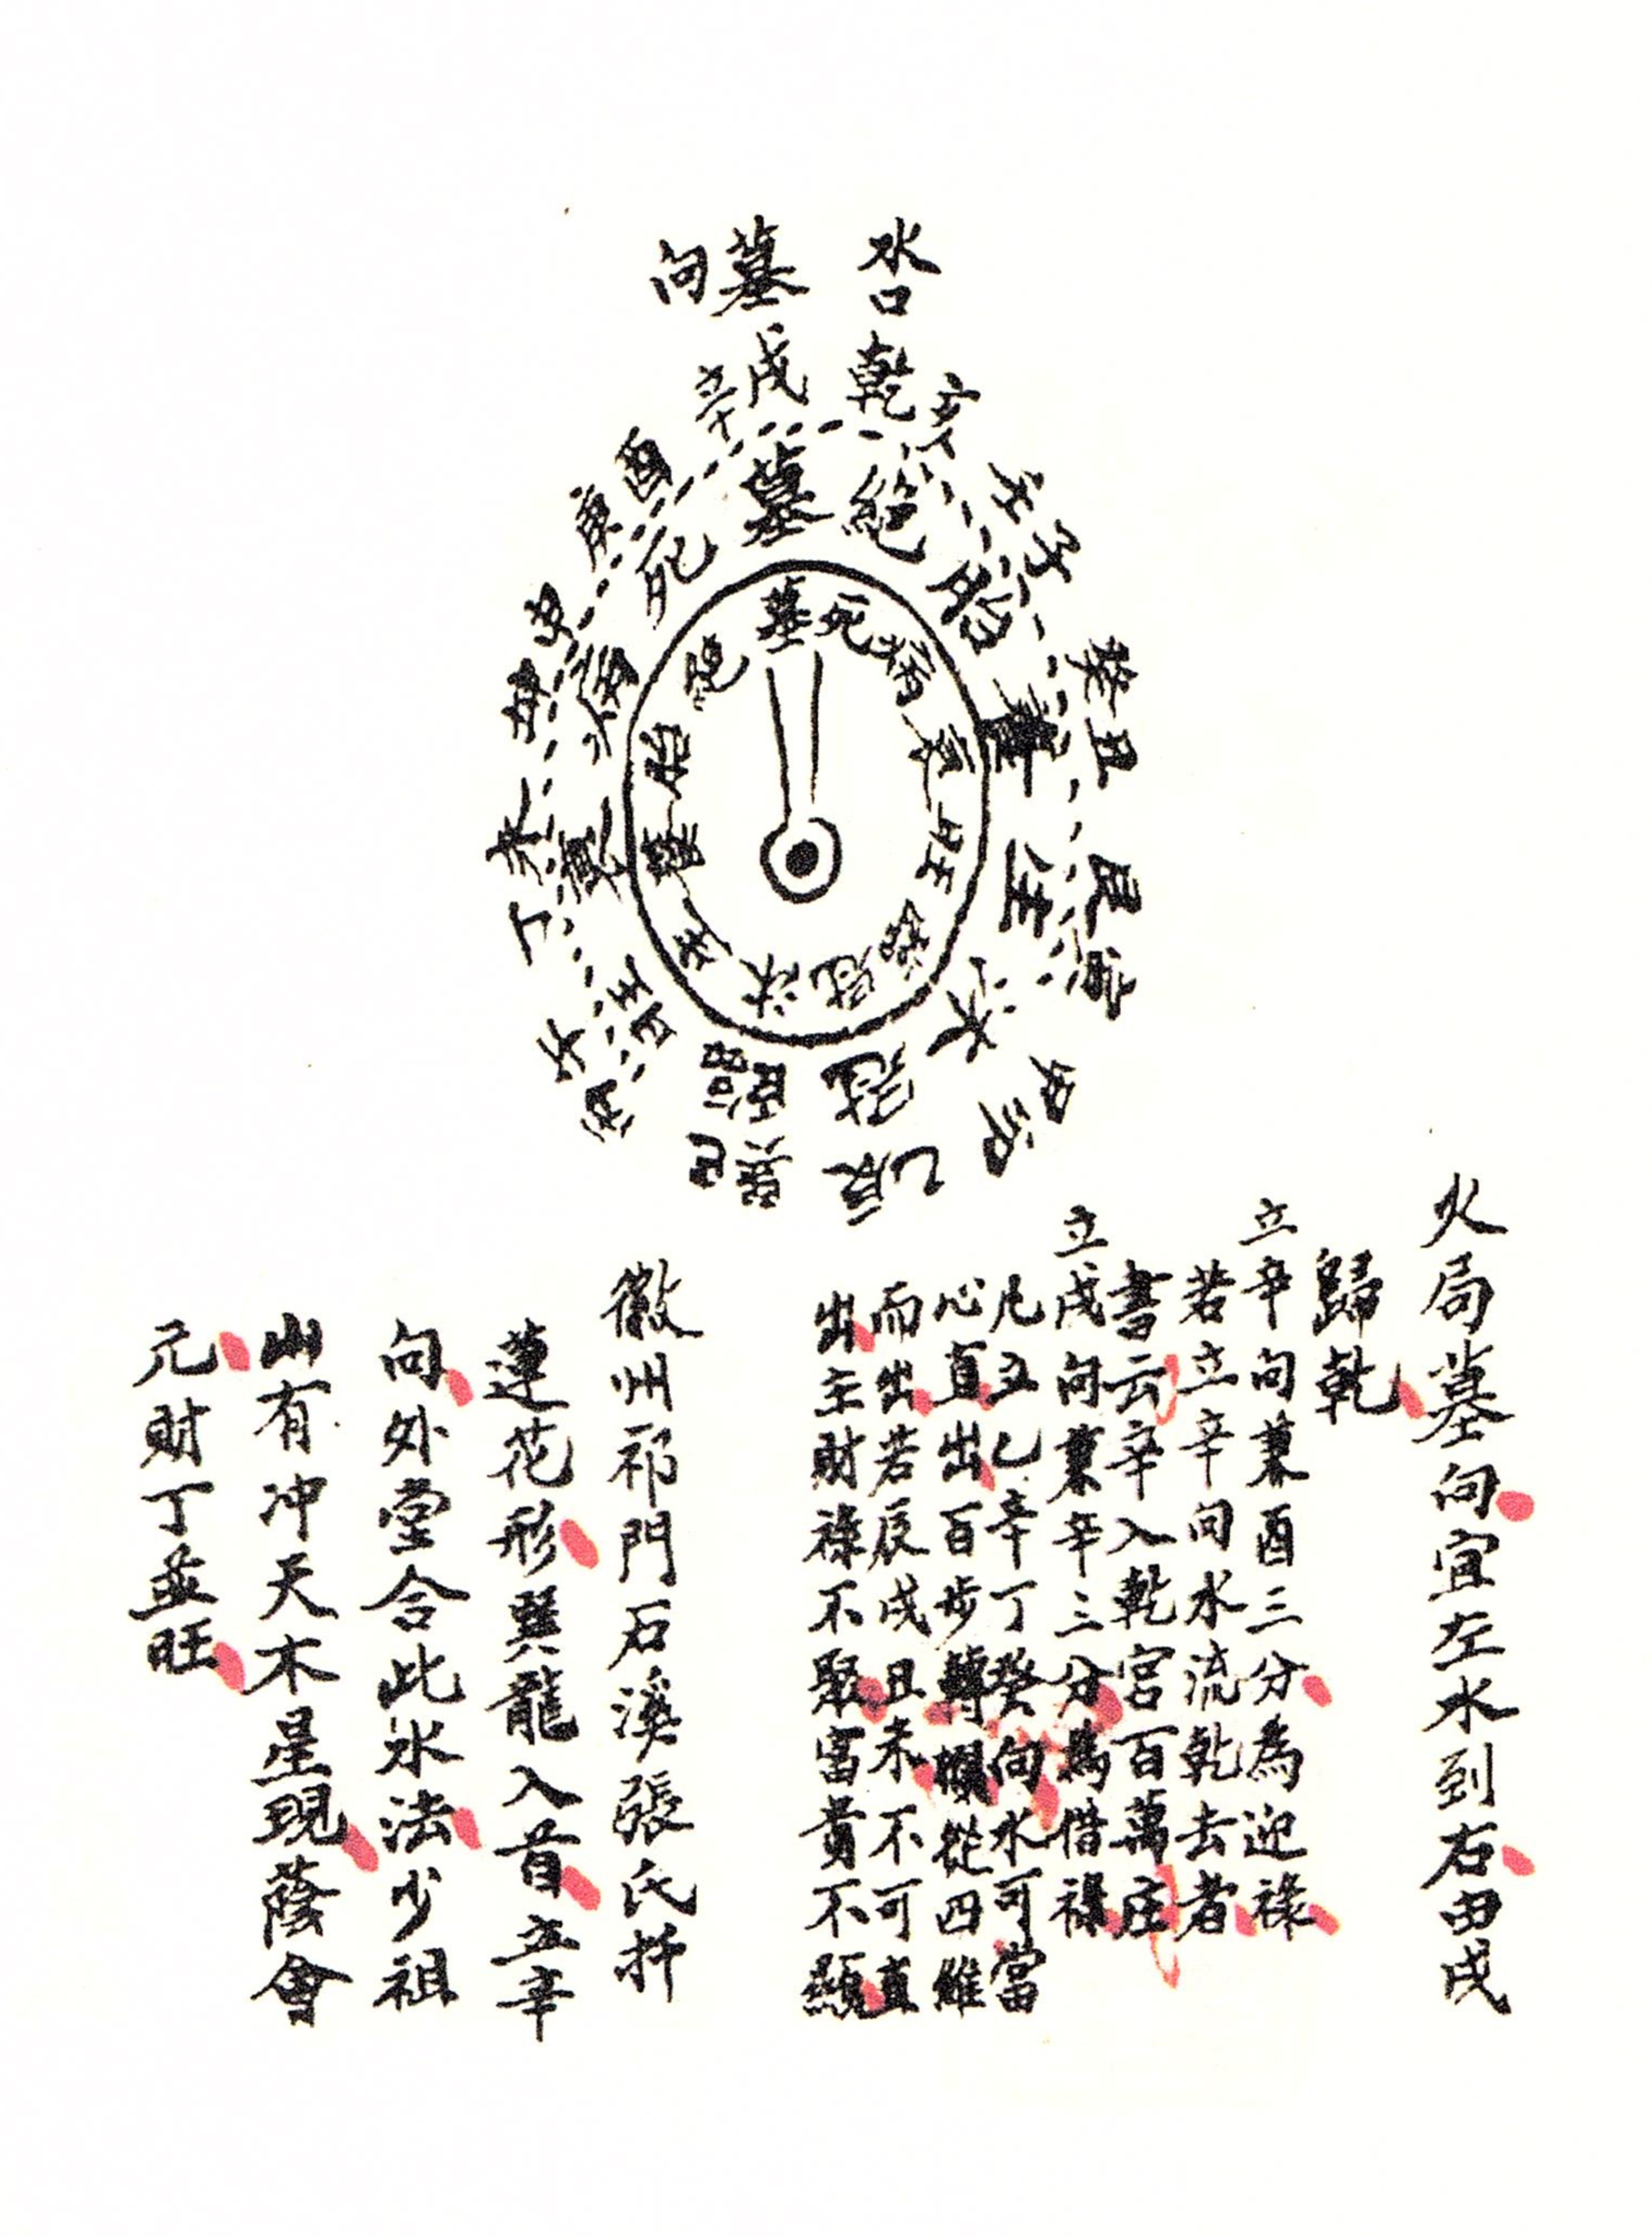 水口
墓向
乾亥
辛戌
壬子
癸丑
艮寅
甲卯
乙辰
巽巳
丙午
丁未
坤申
庚酉
墓
絕
胎
養
生
沐
冠
臨官
旺
衰
病
死
墓
死
病
衰
旺
臨
冠
沐
生
養
胎
絕
火局墓向宜左水到右由戌
歸乾
立辛向兼酉三分為迎祿
若立辛向水流乾去者
書云辛入乾宮百萬庄
立戌向兼辛三分為借祿
凡立乙辛丁癸向水可當
心直出百步轉欄從四維
而出若辰戌丑未不可直
出主財祿不聚富貴不顯
徽州祁門石溪張氏扦
蓮花形巽龍入首立辛
向外堂合此水法少祖
山有冲天木星現蔭會
元財丁並旺